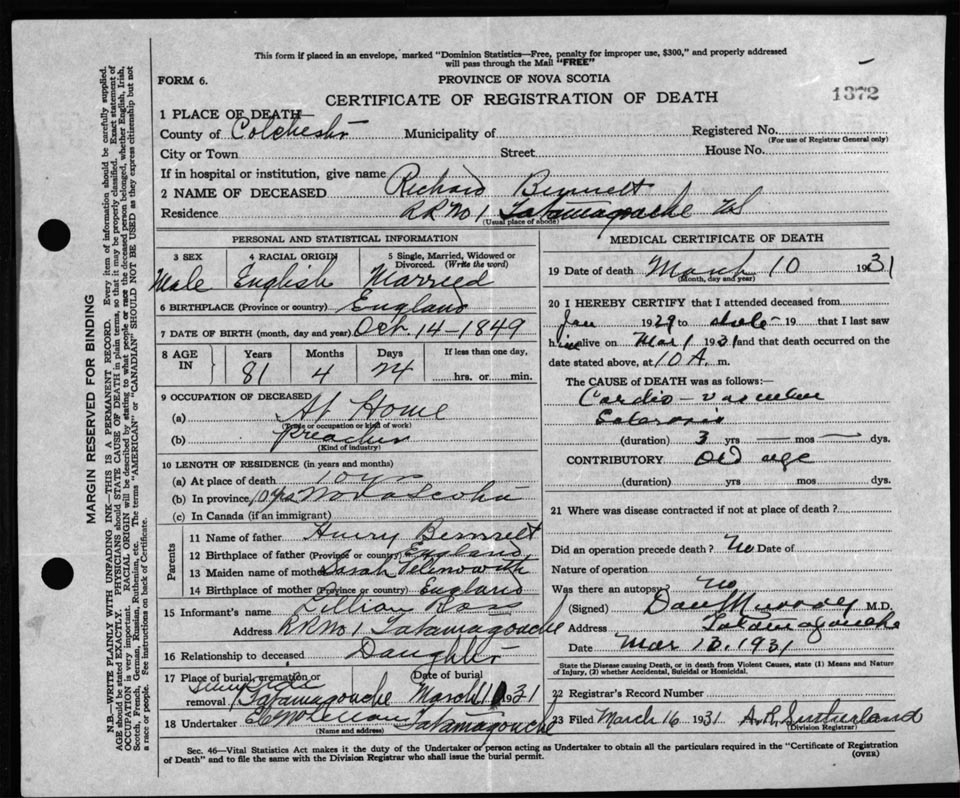 This form if placed in an envelope, marked "Dominion Statistics—Free, penalty for improper use, $300," and properly addressed
will pass through the Mail "FREE"
FORM 6.
PROVINCE OF NOVA SCOTIA
CERTIFICATE OF REGISTRATION OF DEATH
1372
1 PLACE OF DEATH—
County of Colchester Municipality of Registered No.
(For use of Registrar General only)
City or Town Street House No.
If in hospital or institution, give name
2 NAME OF DECEASED Richard Bennett
Residence RR No 1 Tatamagouche NS
(Usual place of abode)
PERSONAL AND STATISTICAL INFORMATION
3 SEX 4 RACIAL ORIGIN 5 Single, Married, Widowed or
Divorced. (Write the word)
Male English Married
6 BIRTHPLACE (Province or country) England
7 DATE OF BIRTH (month, day and year) Oct. 14-1849
8 AGE IN Years Months Days If less than one day,
81 4 24 hrs. or min.
9 OCCUPATION OF DECEASED
(a) At Home
(Trade or occupation or kind of work)
(b) Preacher
(Kind of industry)
10 LENGTH OF RESIDENCE (in years and months)
(a) At place of death 10 yrs
(b) In province 10 yrs Nova Scotia
(c) In Canada (if an immigrant)
Parents
11 Name of father Henry Bennett
12 Birthplace of father (Province or country) England
13 Maiden name of mother Sarah
14 Birthplace of mother (Province or country) England
15 Informant's name Lillian Ross
Address RR No 1 Tatamagouche
16 Relationship to deceased Daughter
17 Place of burial, cremation or Date of burial
removal Tatamagouche March 1931
18 Undertaker Tatamagouche
(Name and address)
MEDICAL CERTIFICATE OF DEATH
19 Date of death March 10 1931
(Month, day and year)
20 I HEREBY CERTIFY that I attended deceased from
Jan 1929 to date 19 that I last saw
him alive on Mar 1 1931 and that death occurred on the
date stated above, at 10 A. m.
The CAUSE of DEATH was as follows:—
Cardio-vascular
Sclerosis
(duration) 3 yrs — mos — dys.
CONTRIBUTORY Old age
(duration) yrs mos dys.
21 Where was disease contracted if not at place of death?
Did an operation precede death? No Date of
Nature of operation
Was there an autopsy? No
(Signed) Dan Murray M.D.
Address Tatamagouche
Date Mar 1931
State the Disease causing Death, or in death from Violent Causes, state (1) Means and Nature
of Injury, (2) whether Accidental, Suicidal or Homicidal.
22 Registrar's Record Number
23 Filed March 16 1931 Sutherland
(Division Registrar)
Sec. 46—Vital Statistics Act makes it the duty of the Undertaker or person acting as Undertaker to obtain all the particulars required in the "Certificate of Registration
of Death" and to file the same with the Division Registrar who shall issue the burial permit.
(OVER)
MARGIN RESERVED FOR BINDING
N.B.—WRITE PLAINLY WITH UNFADING INK—THIS IS A PERMANENT RECORD. Every item of information should be carefully supplied.
AGE should be stated EXACTLY. PHYSICIANS should STATE CAUSE OF DEATH in plain terms, so that it may be properly classified. Exact statement of
OCCUPATION is very important. RACIAL ORIGIN will be described by stating to what people or race the deceased person belonged, whether English, Irish,
Scotch, French, German, Russian, Ruthenian, etc. The terms "AMERICAN" or "CANADIAN" SHOULD NOT BE USED as they express citizenship but not
a race or people. See instructions on back of Certificate.